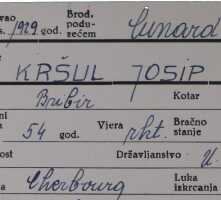 vao
s. 1929 god. Brod. podu- zećem Cunard
KRŠUL JOSIP
Bribir Kotar
ni
i 54 god. Vjera rkt. Bračno stanje
ost Državljanstvo
a Cherbourg Luka iskrcanja